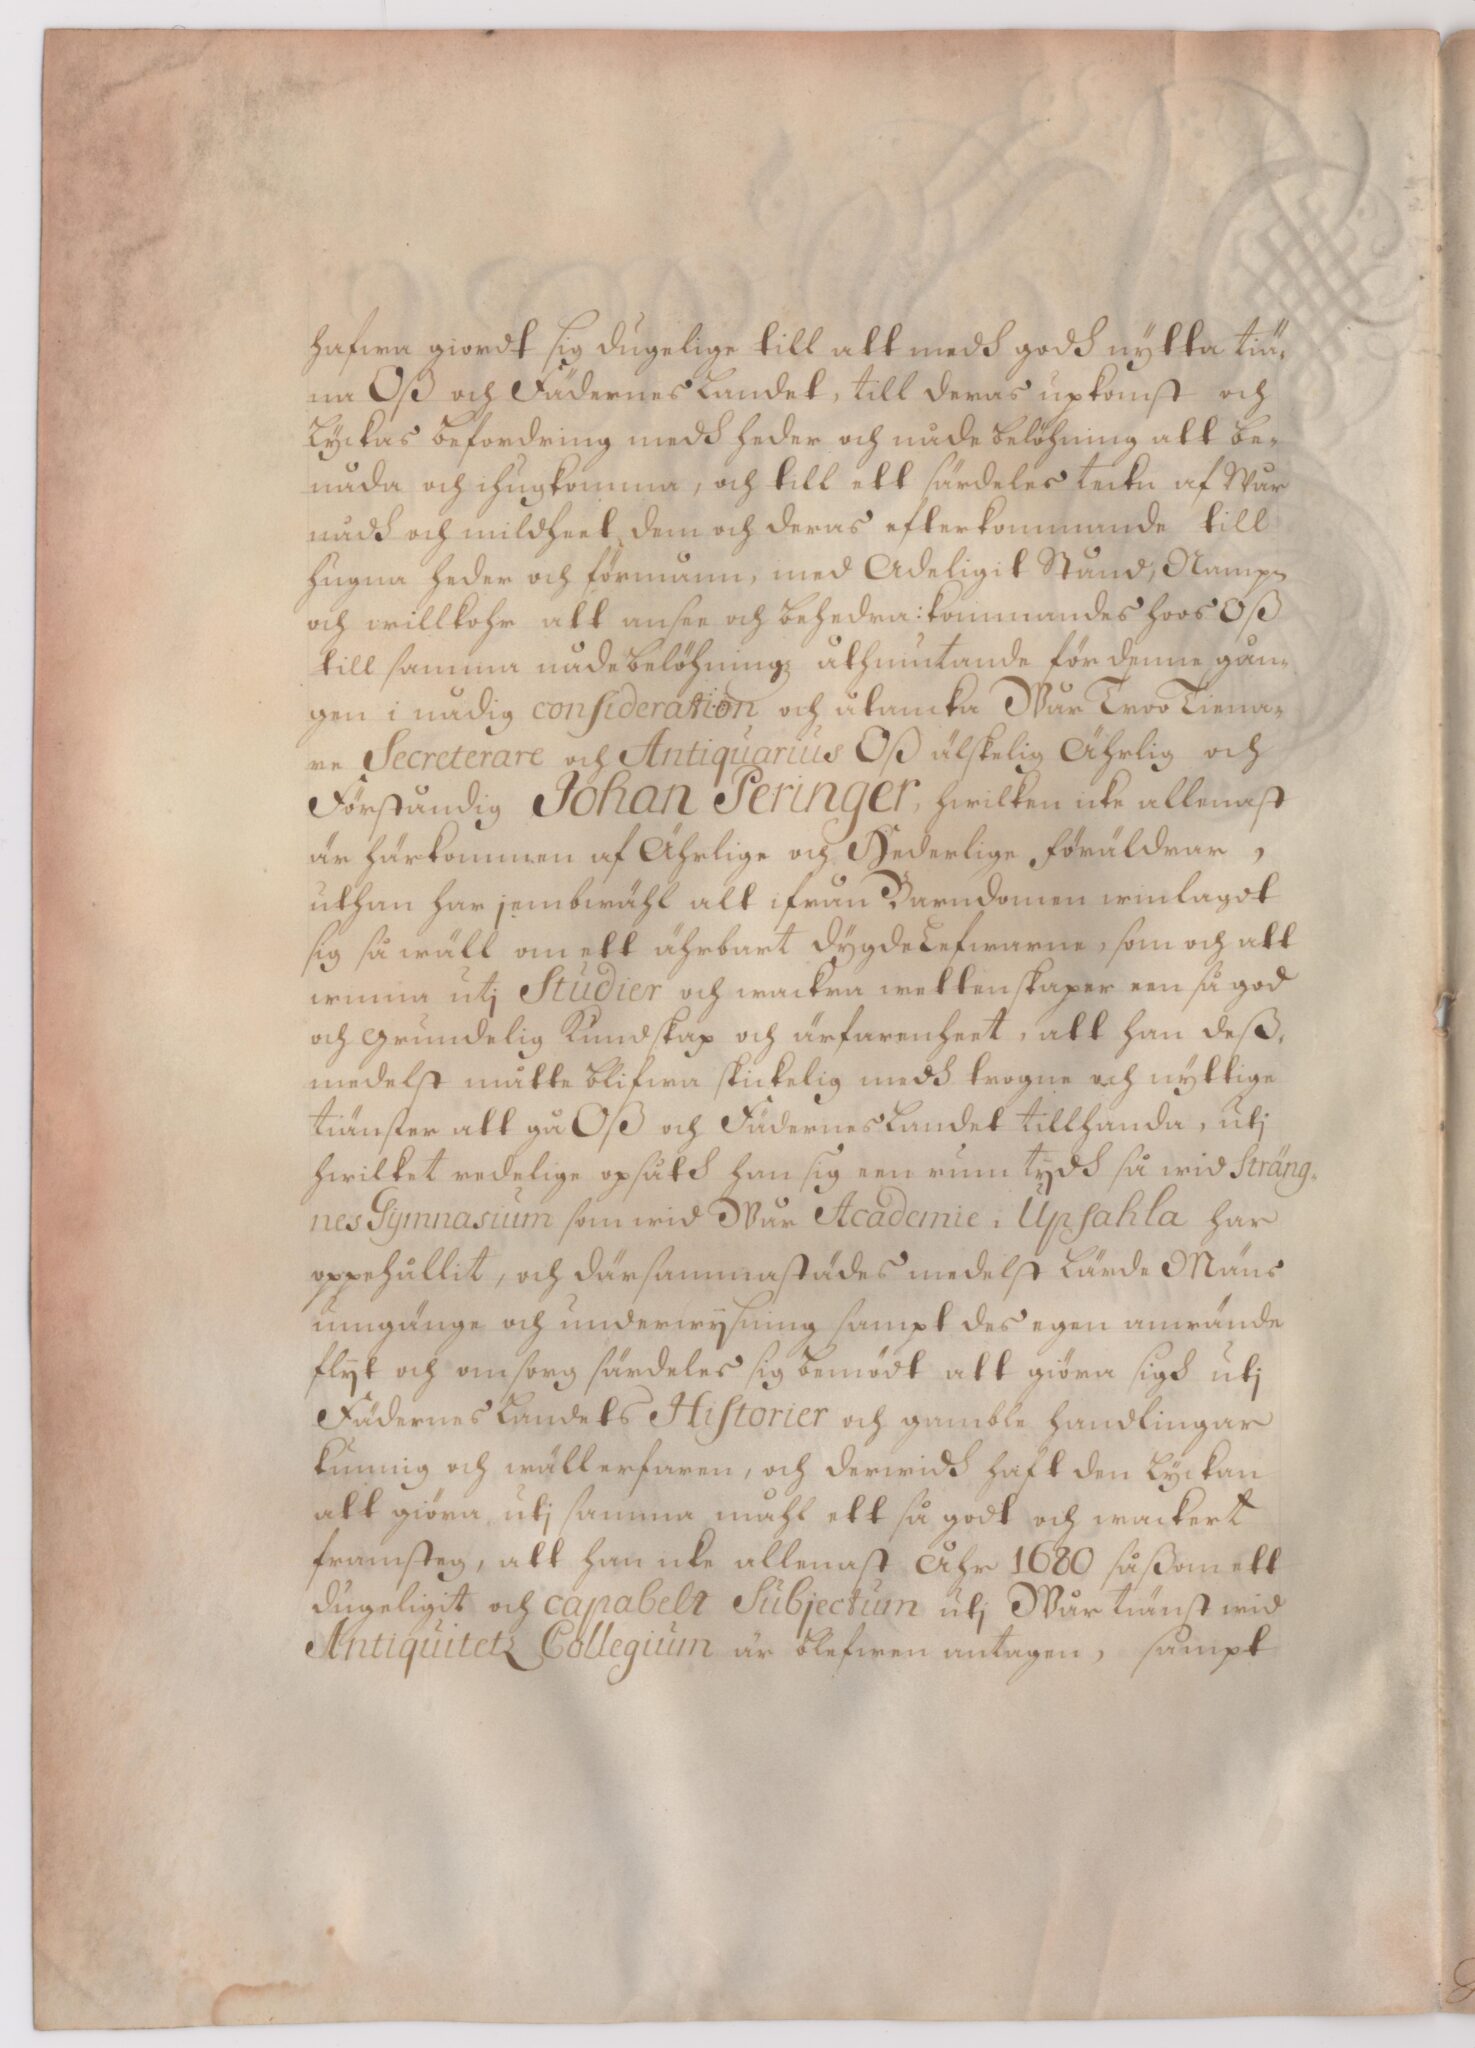 hafwa giordt sig dugelige till att medh godh nytta tiä-
na Oß och Fädernes Landet, till deras upkomst och
Lyckas befordring medh heder och nåde belöhning att be-
nåda och ihugkomma, och till ett särdeles teckn af Wår
nådh och mildheet, dem och deras efterkommande till
hugna heder och förmånn, med Adeligit Stånd, Nampn
och willkohr att ansee och behedra: kommandes hoos Oß
till samma nådebelöhning uthmutande för denne gån-
gen i nådig consideration och åtancka Wår Troo Tiena-
re Secreterare och Antiquarius Oß älskelig Ährlig och
Förståndig Johan Peringer, hwilken icke allenast
är härkommen af Ährlige och Hederlige föräldrar,
uthan har jembwähl alt ifrån Barndomen winlagdt
sig så wäll om ett ährbart dygde Lefwarne, som och att
winna utj Studier och wackra wettenskaper een så god
och grundelig Kundskap och ärfarenheet, att han deß-
medelst måtte blifwa skickelig medh trogne och nyttige
tiänster att gå Oß och Fädernes Landet tillhanda, utj
hwilket redelige opsåth han sig een rum tydh så wid Sträng-
nes Gymnasium som wid Wår Academie i Upsahla har
oppehållit, och därsammastädes medelst Lärde Mäns
umgänge och underwysning sampt des egen anwände
flyt och omsorg särdeles sig bemödt att giöra sigh utj
Fädernes Landets Historier och gamble handlingar
kunnig och wäll erfaren, och derwidh haft den Lyckan
att giöra utj samma måhl ett så godt och wackert
framsteg, att han icke allenast Åhr 1680 såßom ett
dugeligit och capabelt Subjectum utj Wår tiänst wid
Antiquitetz Collegium är blefwen antagen, sampt